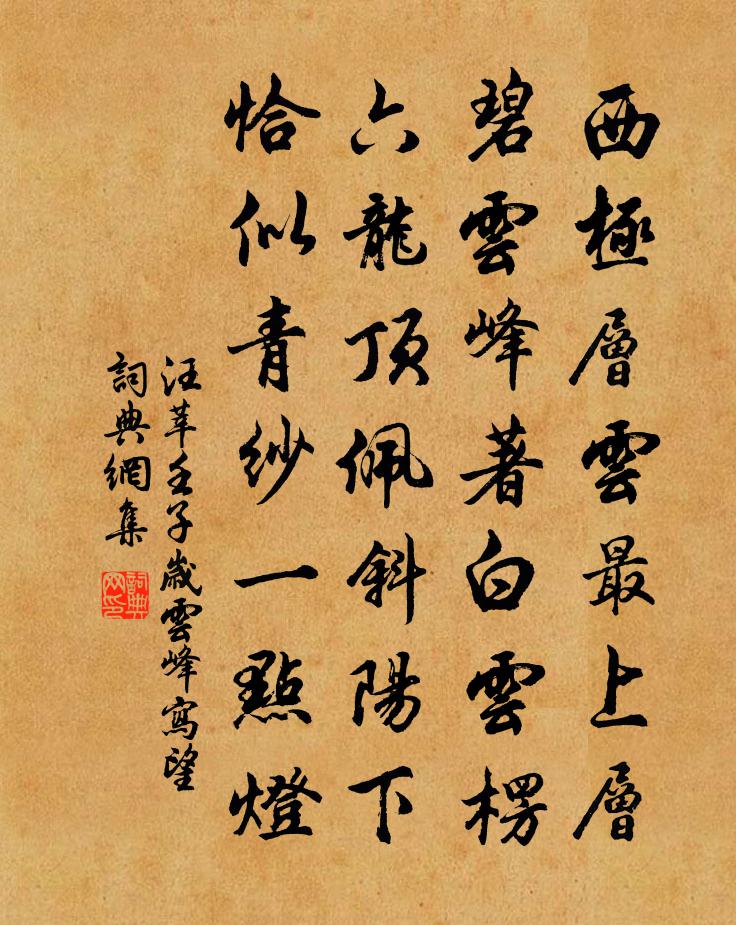 西極層雲最上層
碧雲峰著白雲楞
六龍頂佩斜陽下
恰似青紗一點燈
汪莘壬子歲雲峰寫望
詞典網集
詞典
网印